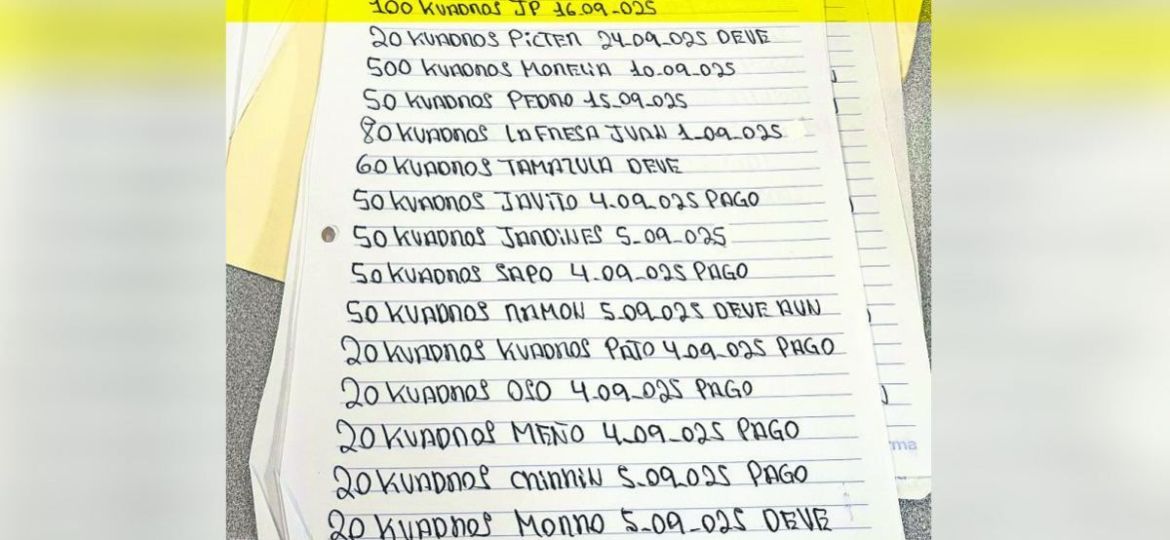 100 KUADROS JP 16.09-025
20 KUADROS PiCTER 24-09-025 DEVE
500 KUADROS MORELIA 10-09-025
50 KUADROS PEDRO 15-09-025
80 KUADROS LA FRESA JUAN 1-09-025
60 KUADROS TAMAZULA DEVE
50 KUADROS JAViTO 4-09-025 PAGO
50 KUADROS JARDINES 5-09-025
50 KUADROS SAPO 4-09-025 PAGO
50 KUADROS RAMON 5-09-025 DEVE AUN
20 KUADROS KUADROS PATO 4-09-025 PAGO
20 KUADROS OSO 4-09-025 PAGO
20 KUADROS MEÑO 4-09-025 PAGO
20 KUADROS 5-09-025 PAGO
20 KUADROS MORRO 5-09-025 DEVE
rma